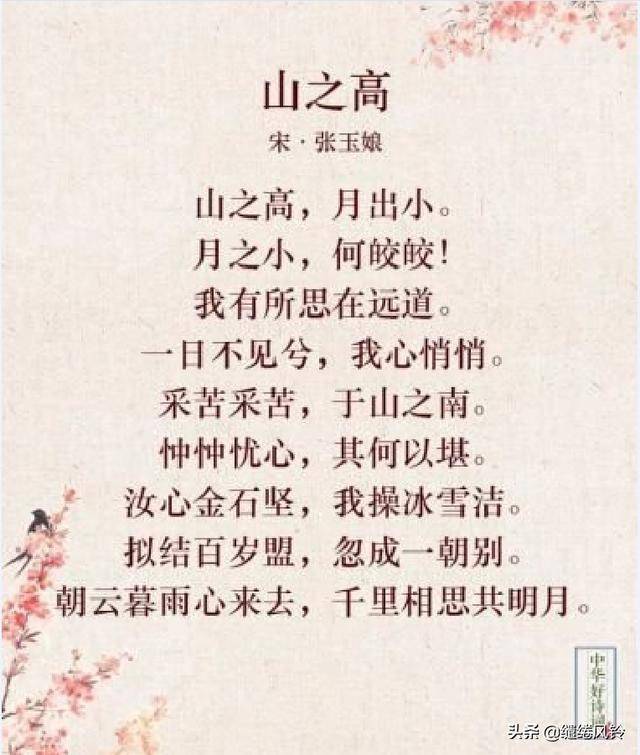 山之高
宋·张玉娘
山之高，月出小。
月之小，何皎皎！
我有所思在远道。
一日不见兮，我心悄悄。
采苦采苦，于山之南。
忡忡忧心，其何以堪。
汝心金石坚，我操冰雪洁。
拟结百岁盟，忽成一朝别。
朝云暮雨心来去，千里相思共明月。
中华好诗词
头条 @缱绻风铃